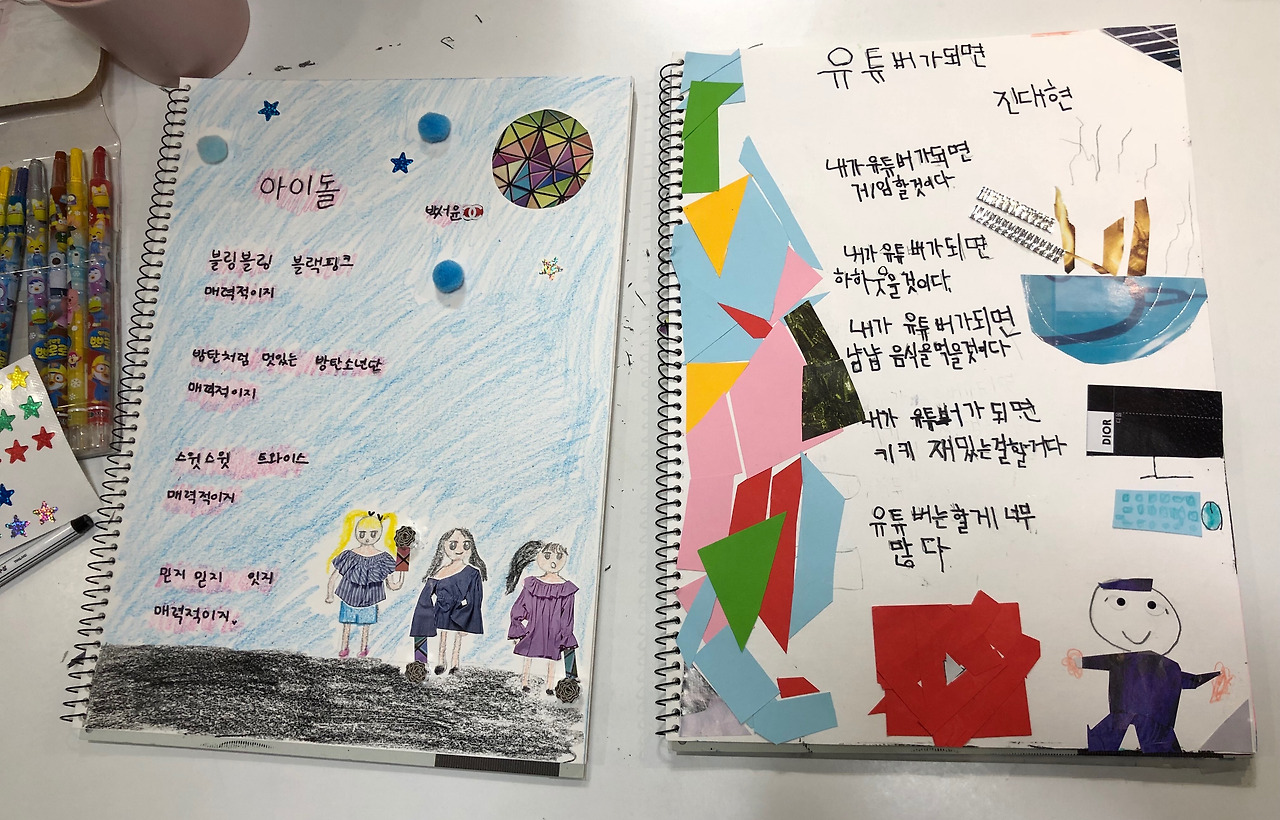 아이돌
박서윤
블링블링 블랙핑크
매력적이지
방탄처럼 멋있는 방탄소년단
매력적이지
스윗스윗 트와이스
매력적이지
믿지 믿지 잇지
매력적이지
유튜버가되면
진대현
내가유튜버가되면
게임할것이다
내가유튜버가되면
하하웃을것이다
내가 유튜버가되면
냠냠 음식을먹을것이다
내가 유튜버가 되면
키키 재밌는걸할거다
유튜버는할게 너무
많다
DIOR